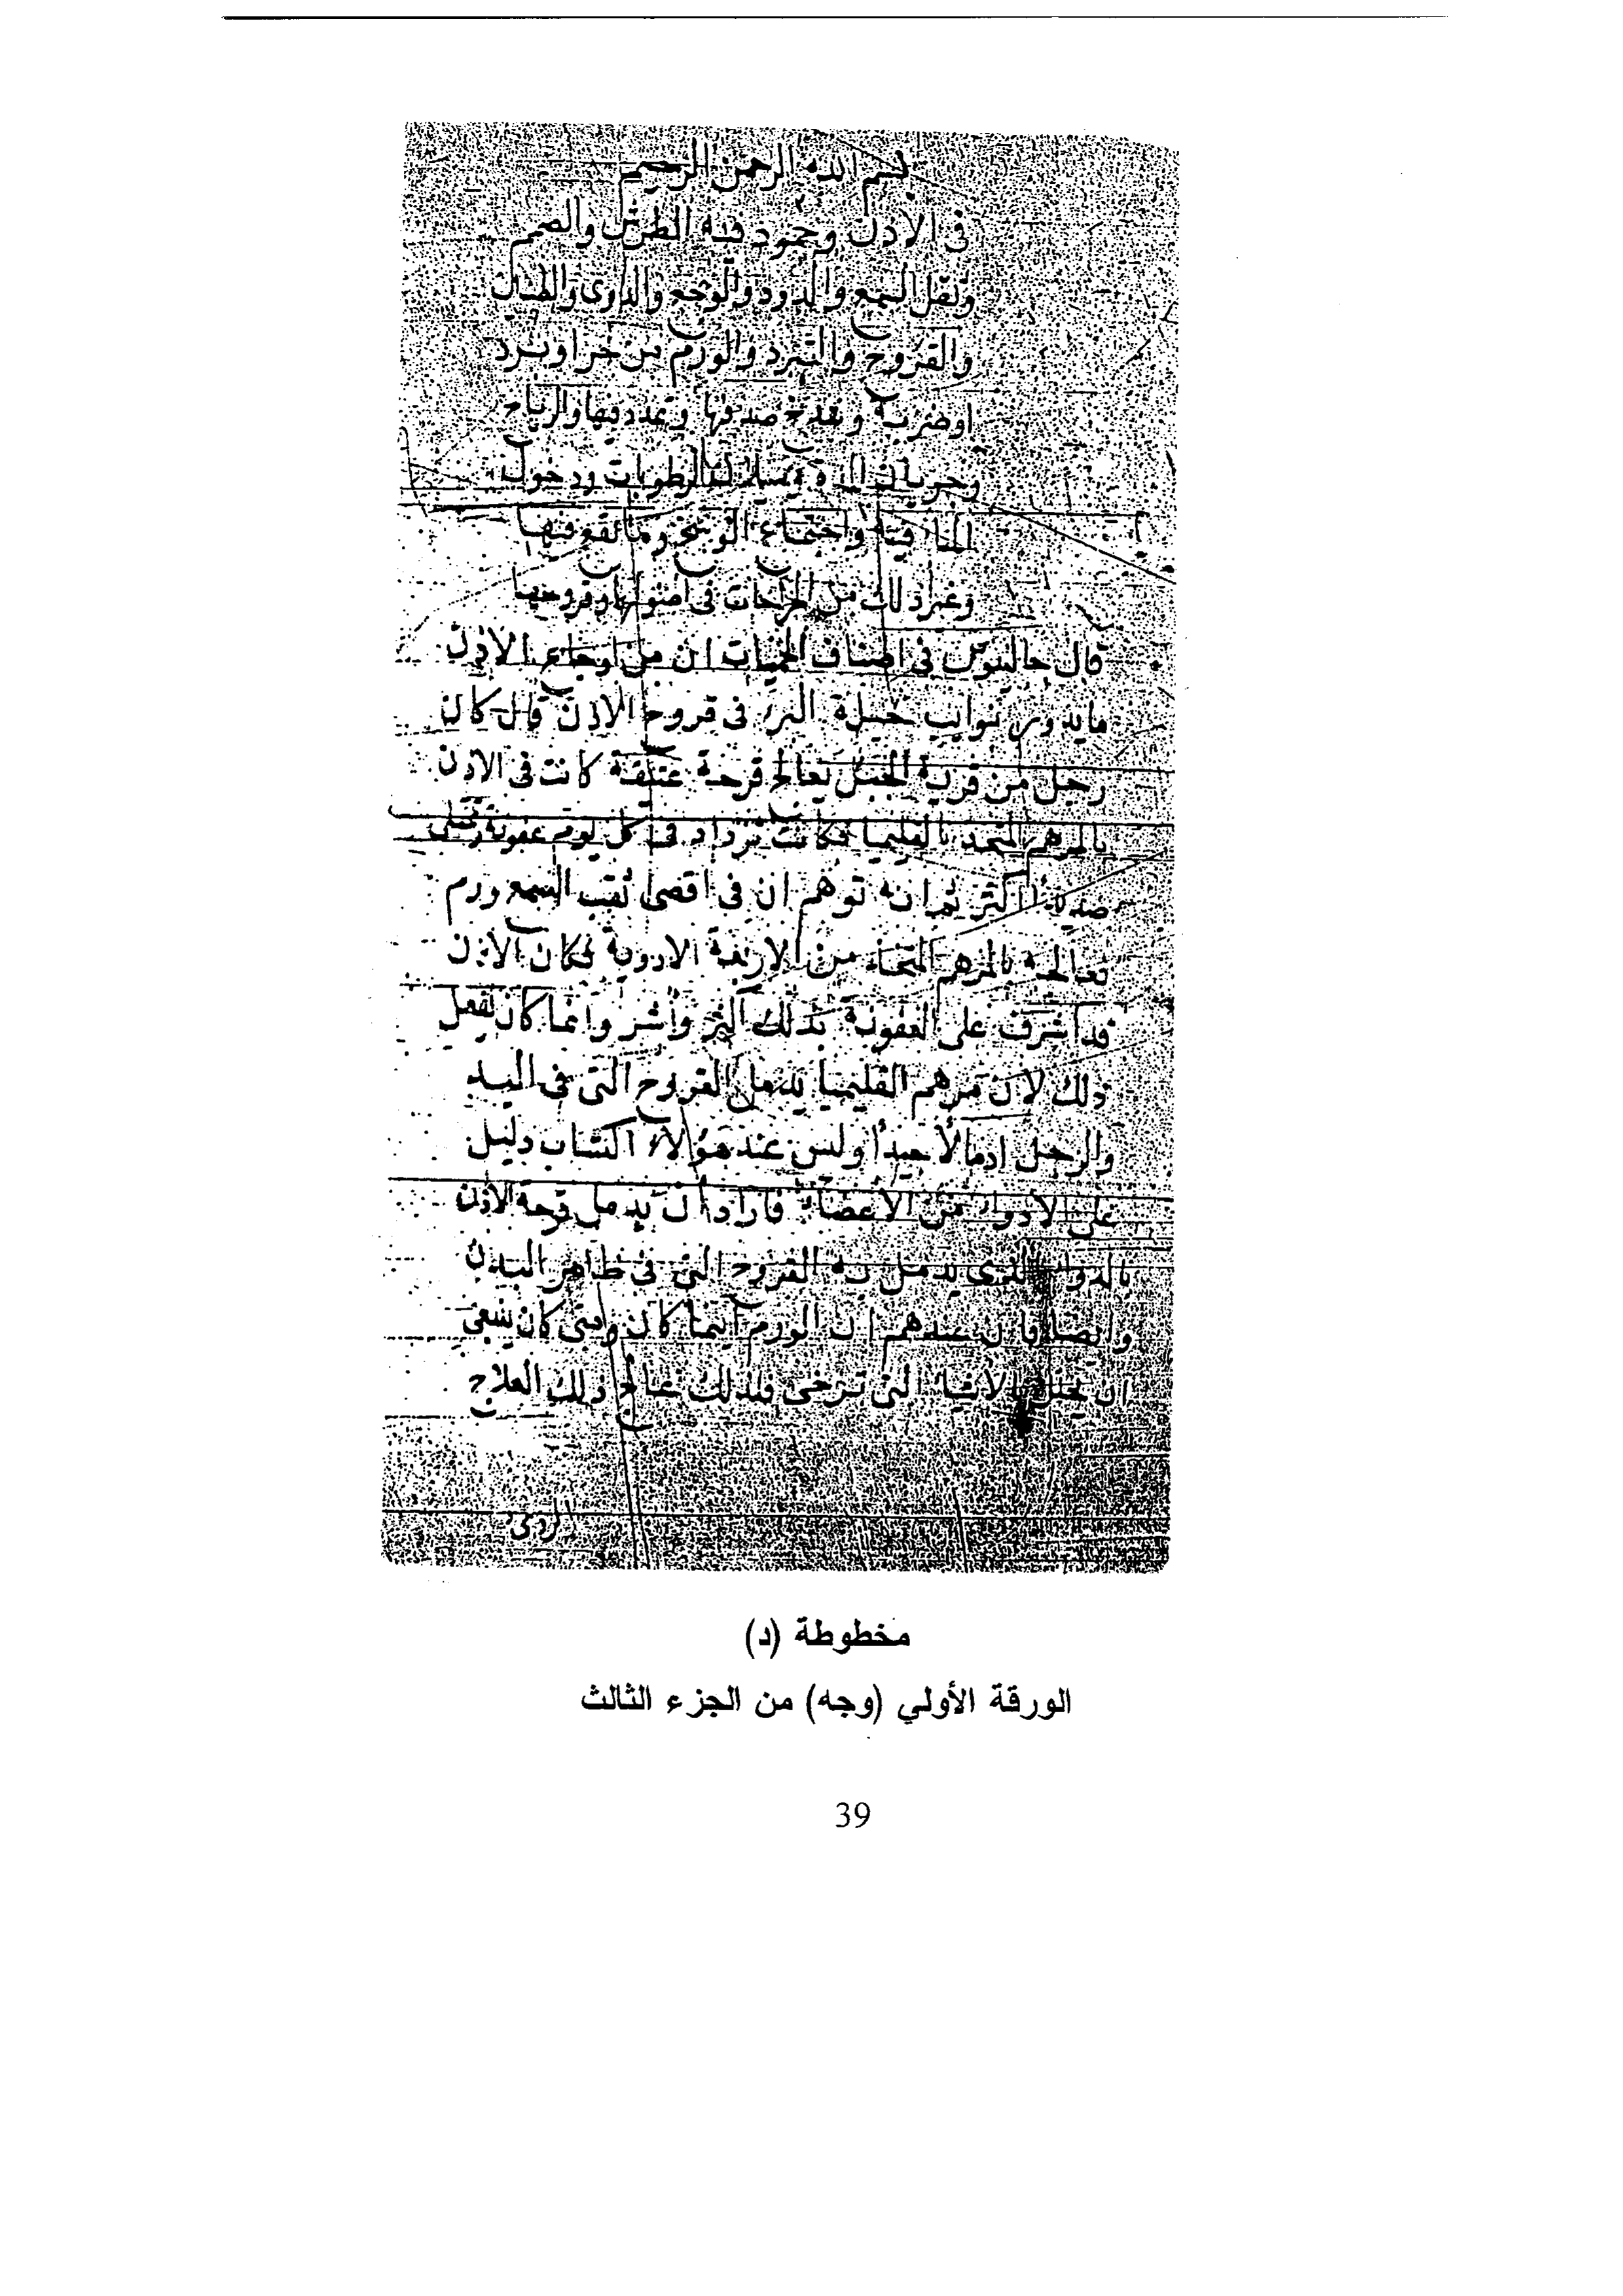 بسم الله الرحمن الرحيم
فى الاذن وجمود فيه الطرش والصمم
وثقل السمع والدود والوجع والدوى والطنين
والقروح والتبرد والورم من حر او برد
او ضربة صدفها وتمدد فيها والرياح
الرطوبات ودخول
واجتماع الوسخ وما يقع فيها
وغير ذلك من الجراحات فى اصولها وقروحها
قال جالينوس فى اصناف الحميات ان من اوجاع الاذن
ما يدور بنوايب حيلة البرء فى قروح الاذن قال كان
رجل من قرية الجبل يعالج قرحة عتيقة كانت فى الاذن
بالمرهم المتخذ بالقليميا فكانت تزداد فى كل يوم عفونة
صديدا اكثر ثم انه توهم ان فى اقصى ثقب السمع ورم
فعالجه بالمرهم المتخذ من الاربعة الادوية فكان الاذن
قد اشرف على العفونة بذلك اكثر واشر وانما كان يفعل
ذلك لان مرهم القليميا يدمل القروح التى فى اليد
والرجل ادمالا جيدا وليس عند هؤلاء اكتساب دليل
على الادواء من الاعضاء فاراد ان يدمل قرحة الاذن
بالدواء الذى يدمل به القروح التى فى ظاهر البدن
وايضا فان عندهم ان الورم اينما كان ومتى كان ينبغى
ان يحلل بالاشياء التى ترخى فلذلك عالج ذلك العلاج
الردى
مخطوطة (د)
الورقة الأولي (وجه) من الجزء الثالث
39